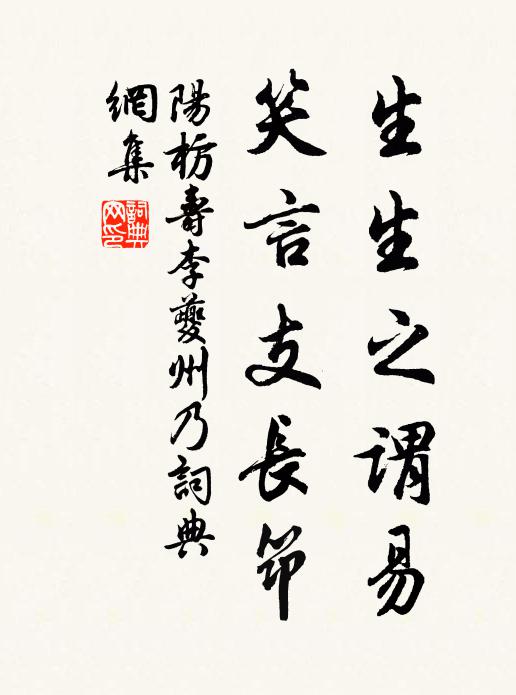 生生之謂易
笑言支長笻
陽枋壽李夔州乃詞典
網集
詞典
网印